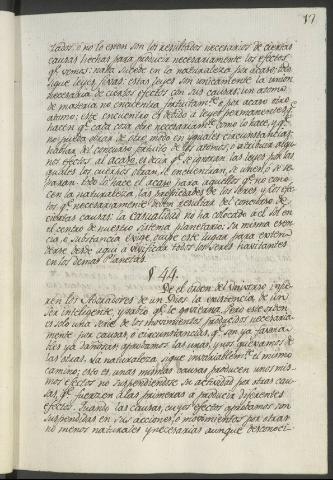 17
lados, o no lo esson son los resultados necesarios de ciertas
causas hechas para producir necesariamente los efectos
qe vemos: nada sucede en la naturaleza por acaso; todo
sigue leyes fixas: estas leyes son unicamente la union
necesaria de ciertos efectos con sus causas; un atomo
de materia no encuentra fortuitamte o por acaso otro
atomo; este encuentro es debido a leyes permanentes qe
hacen qe cada cosa obre necesariamte como lo hace, y qe
no pueda obrar de otro modo en iguales circunstancias:
hablar del concurso fortuito de los atomos, o atribuir algu-
nos efectos al acaso es decir qe se ignoran las leyes por las
quales los cuerpos obran, se encuentran, se unen, o se se-
paran. Todo lo hace el acaso para aquellos qe no cono-
cen la naturaleza, las propiedades de los seres y los efec-
tos qe necesariamente deben resultar del concurso de
ciertas causas: la casualidad no ha colocado a el sol en
el centro de nuestro sistema planetario; su misma esen-
cia, o substancia exige ocupe este lugar para exten-
derse desde aqui a vivificar todos los seres habitantes
en los demas Planetas.
§ 44.
De el orden del Universo infie-
ren los Adoradores de un Dios la existencia de un
ser inteligente, y sabio qe le govierna. Pero este orden
es solo una serie de los movimientos producidos necesaria-
mente por causas, o circunstancias, qe son ya favora-
bles ya dañosas: aprobamos las unas, y nos quexamos de
las otras. La naturaleza sigue invariablemte el mismo
camino; esto es, unas mismas causas producen unos mis-
mos efectos no suspendiendose su actividad por otras cau-
sas qe fuerzen a las primeras a producir diferentes
efectos. Quando las causas, cuyos efectos aprobamos son
suspendidas en sus acciones, o movimientos por otras
no menos naturales y necesarias aunque desconoci-